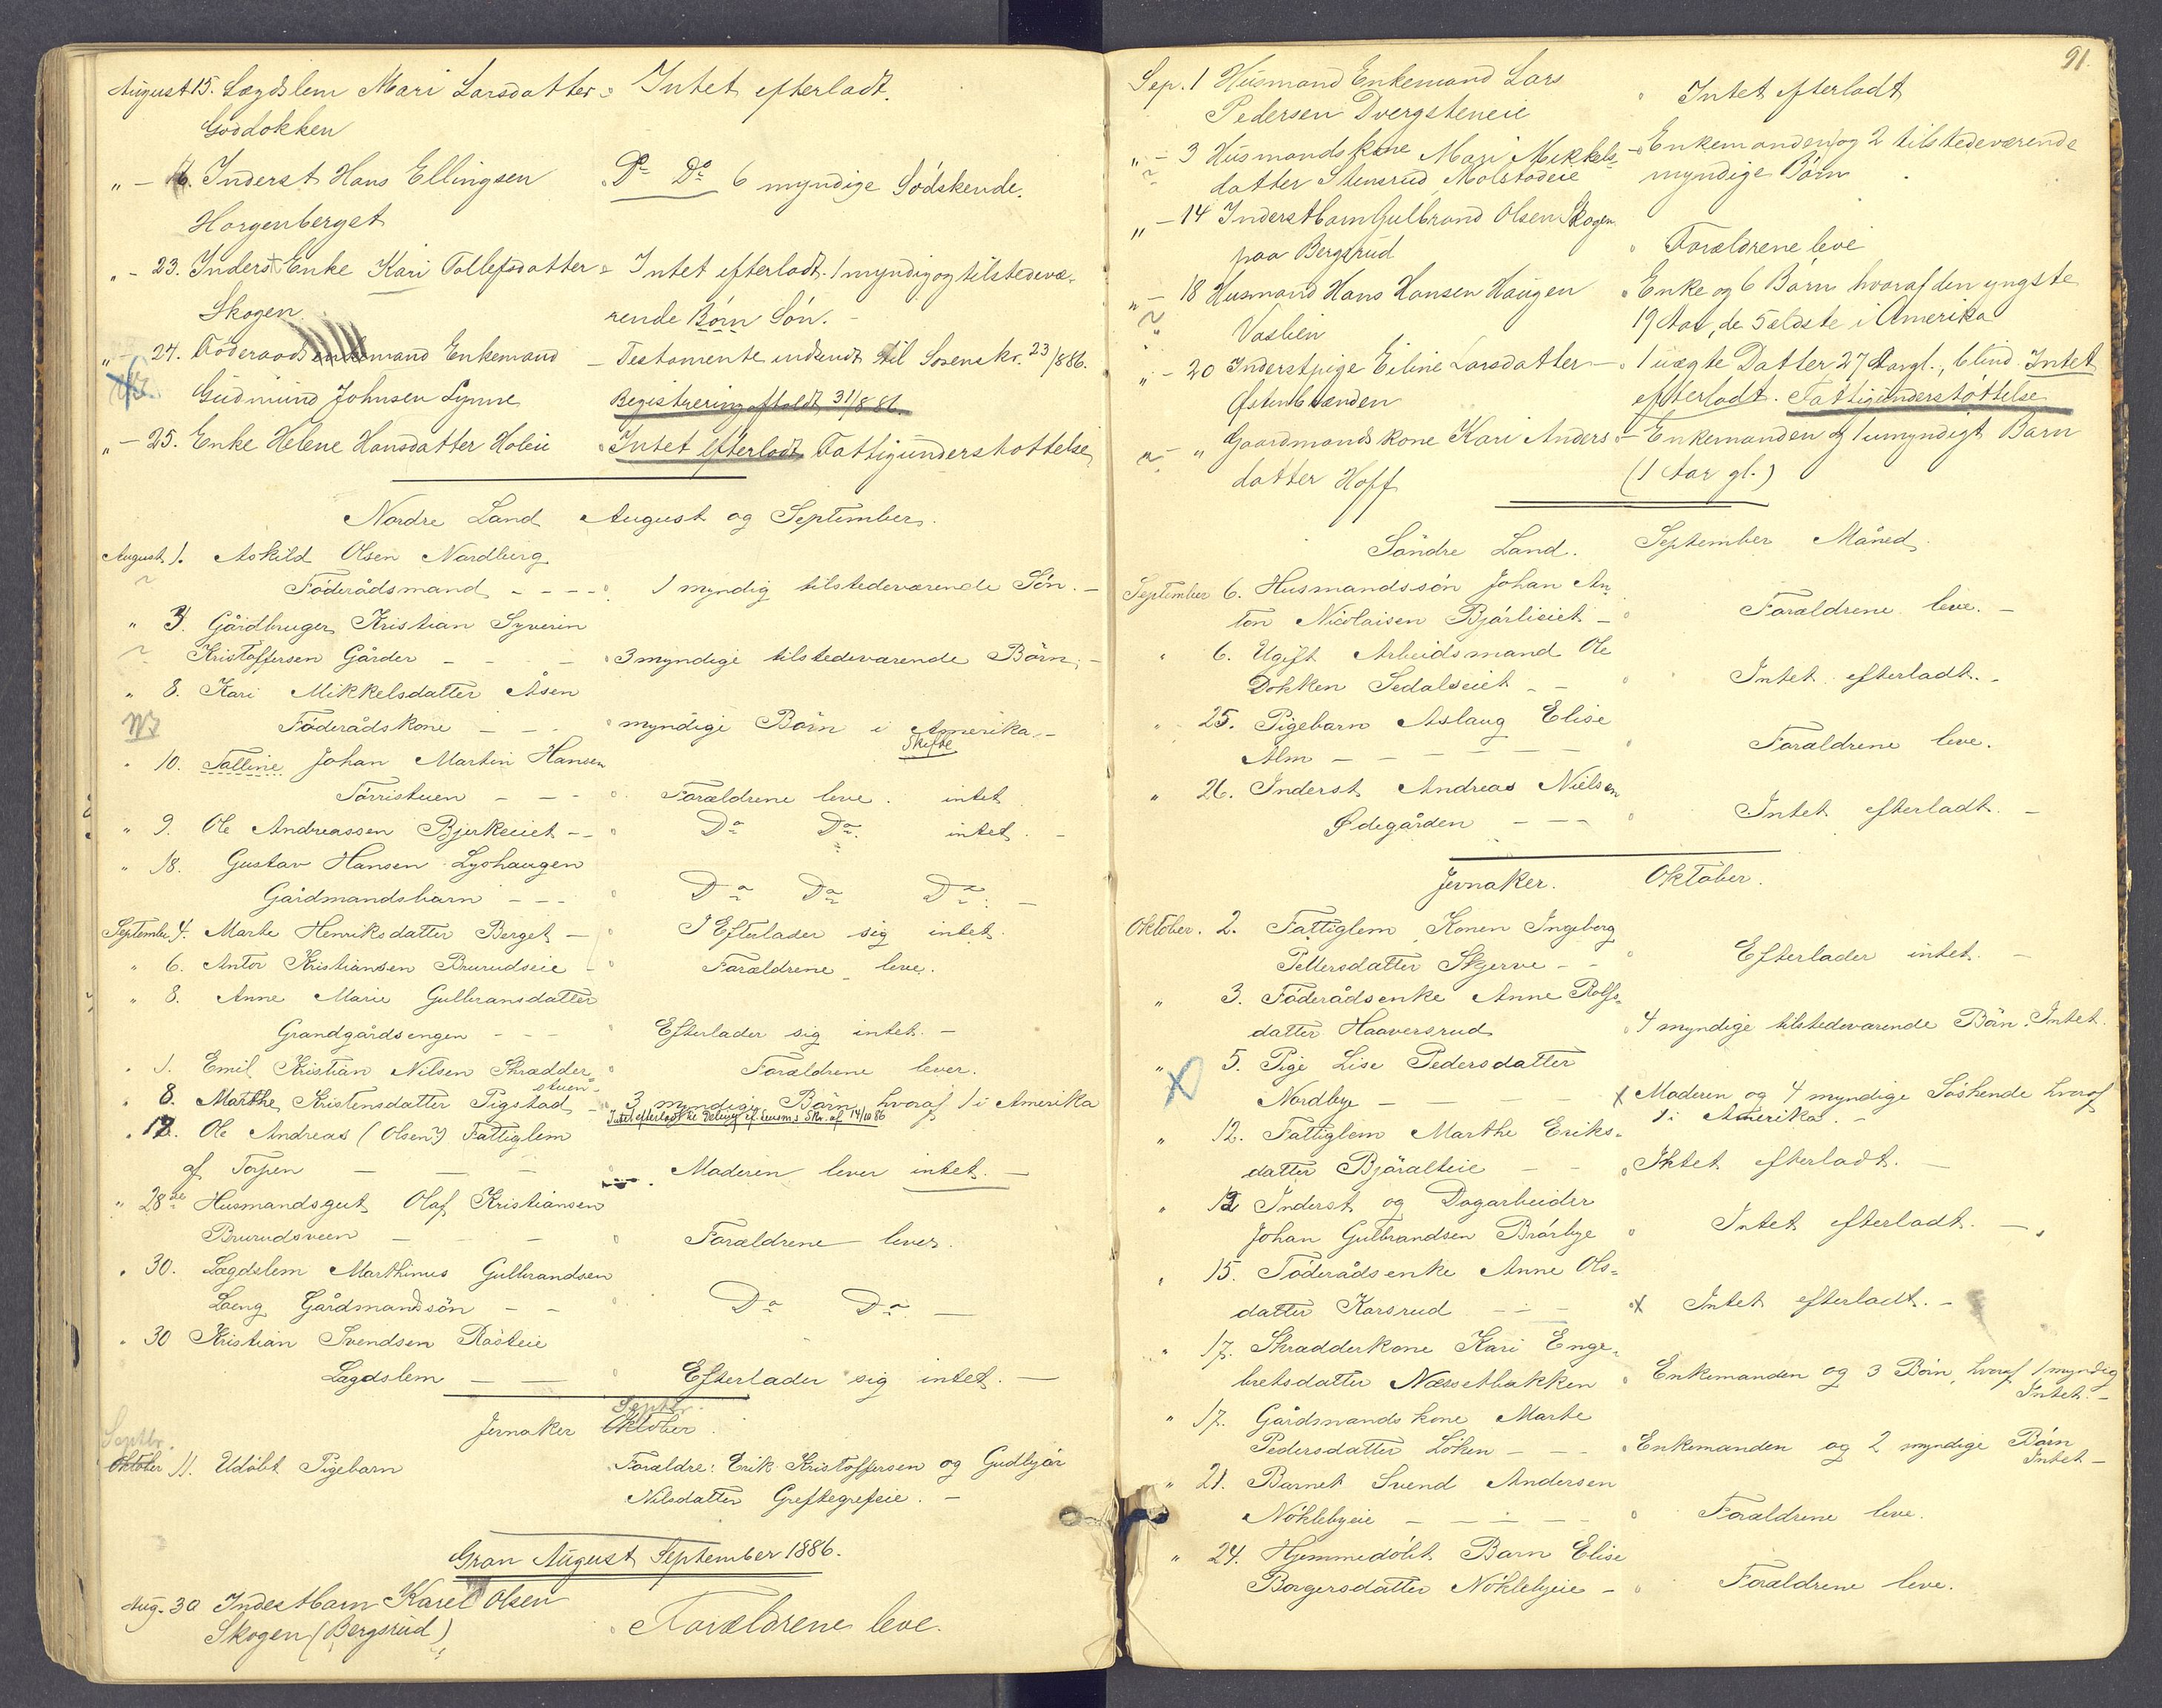 August 15. Lægdslem Mari Larsdatter Intet efterladt.
Goddokken
" - 16. Inderst Hans Ellingsen Do Do 6 myndige Södskende.
Horgenberget
" - 23. Inderst Enke Kari Tollefsdatter Intet efterladt. 1 myndig og tilstedevæ-
Skogen rende Börn Sön. -
" - 24. Föderaads enkemand Enkemand - Testamente indsendt til Sorenskr. 23/8 86.
Gudmund Johnsen Lynne Registrering afholdt 31/8 86.
" - 25. Enke Helene Hansdatter Holeie Intet efterladt Fattigunderstøttelse
Nordre Land August og September.
August 1. Askild Olsen Nordberg
Föderådsmand - - - - 1 myndig tilstedeværende Sön. -
" 3. Gårdbruger Kristian Syverin
Kristoffersen Gårder - - - 3 myndige tilstedeværende Börn, -
" 8. Kari Mikkelsdatter Åsen
Föderådskone - - - myndige Börn i Amerika. -
Skifte
" 10. Talline Johan Martin Hansen
Törristuen - - - Forældrene leve. intet
" 9. Ole Andreassen Bjerkeeiet - - Do Do. intet. -
" 18. Gustav Hansen Lyshaugen
Gårdmandsbarn - - - Do Do Do. -
September 4. Marte Henriksdatter Berget - Efterlader sig intet.
" 6. Anton Kristiansen Brurudseie - Forældrene leve.
" 8. Anne Marie Gulbransdatter
Grandgårdsengen - - - Efterlader sig intet. -
" 1. Emil Kristian Nilsen Skrædder- Forældrene lever.
stuen -
" 8. Marthe Kristensdatter Pigstad - 3 myndige Börn, hvoraf 1 i Amerika
Intet efterladt
" 12. Ole Andreas (Olsen?) Fattiglem
af Torpen - - - Moderen lever intet. -
" 28de Husmandsgut Olaf Kristiansen
Brurudsveen - - - Forældrene lever.
" 30. Lægdslem Marthinus Gulbrandsen
Loeng Gårdmandsön - - Do Do -
" 30 Kristian Svendsen Rösteie
Lægdslem - - Efterlader sig intet. -
Septbr.
Jevnaker Oktober.
Septbr.
Oktober 11. Udöbt Pigebarn Forældre: Erik Kristoffersen og Gudbjör
Nilsdatter Greftegrefeie. -
Gran August September 1886.
Aug. 30 Inderstbarn Karel Olsen
Skogen (Bergsrud) Forældrene leve.
91.
Sep. 1 Husmand Enkemand Lars
Pedersen Dvergsteneie Intet efterladt
" - 3 Husmandskone Mari Mikkels- Enkemanden og 2 tilstedeværende
datter Stensrud Molstadeie myndige Börn
" - 14 Inderstbarn Gulbrand Olsen Skogen
paa Bergsrud Forældrene leve
" - 18 Husmand Hans Hansen Haugen Enke og 6 Börn hvoraf den yngste
Voslien 19 Aar, de 5 ældste i Amerika
" - 20 Inderstpige Eiline Larsdatter - 1 uægte Datter 27 Aar gl., blind. Intet
Østenbrænden efterladt. Fattigunderstøttelse
" - " Gaardmandskone Kari Anders- Enkemanden og 1 umyndigt Barn
datter Hoff (1 Aar gl.)
Söndre Land. September Måned.
September 6. Husmandssön Johan An-
ton Nicolaisen Bjørlieiet - Forældrene leve. -
" 6. Ugift Arbeidsmand Ole
Dokken Sedalseiet - - Intet efterladt. -
" 25. Pigebarn Aslaug Elise
Alm - - - - Forældrene leve.
" 26. Inderst Andreas Nielsen
Ødegården - - - Intet efterladt. -
Jevnaker. Oktober.
Oktober. 2. Fattiglem Konen Ingeborg
Pettersdatter Skjerve - - Efterlader intet. -
" 3. Föderådsenke Anne Rolfs-
datter Haaversrud 4 myndige tilstedeværende Börn. Intet.
" 5. Pige Lise Pedersdatter
Nordbye - - - - x Moderen og 4 myndige Söskende hvoraf
1 i Amerika. -
" 12. Fattiglem Marthe Eriks-
datter Björalteie - - Intet efterladt. -
" 12 Inderst og Dagarbeider
Johan Gulbrandsen Brörbye Intet efterladt. -
" 15. Föderådsenke Anne Ols-
datter Korsrud - - - x Intet efterladt. -
" 17. Skrædderkone Kari Enge-
bretsdatter Næssetbakken Enkemanden og 3 Börn, hvoraf 1 myndig
Intet. -
" 17. Gårdmandskone Marte
Pedersdatter Löken - - - Enkemanden og 2 myndige Börn
Intet -
" 21. Barnet Svend Andersen
Nöklebyeie - - - - Forældrene leve.
" 24. Hjemmedöbt Barn Elise
Borgersdatter Nöklebyeie - Forældrene leve.